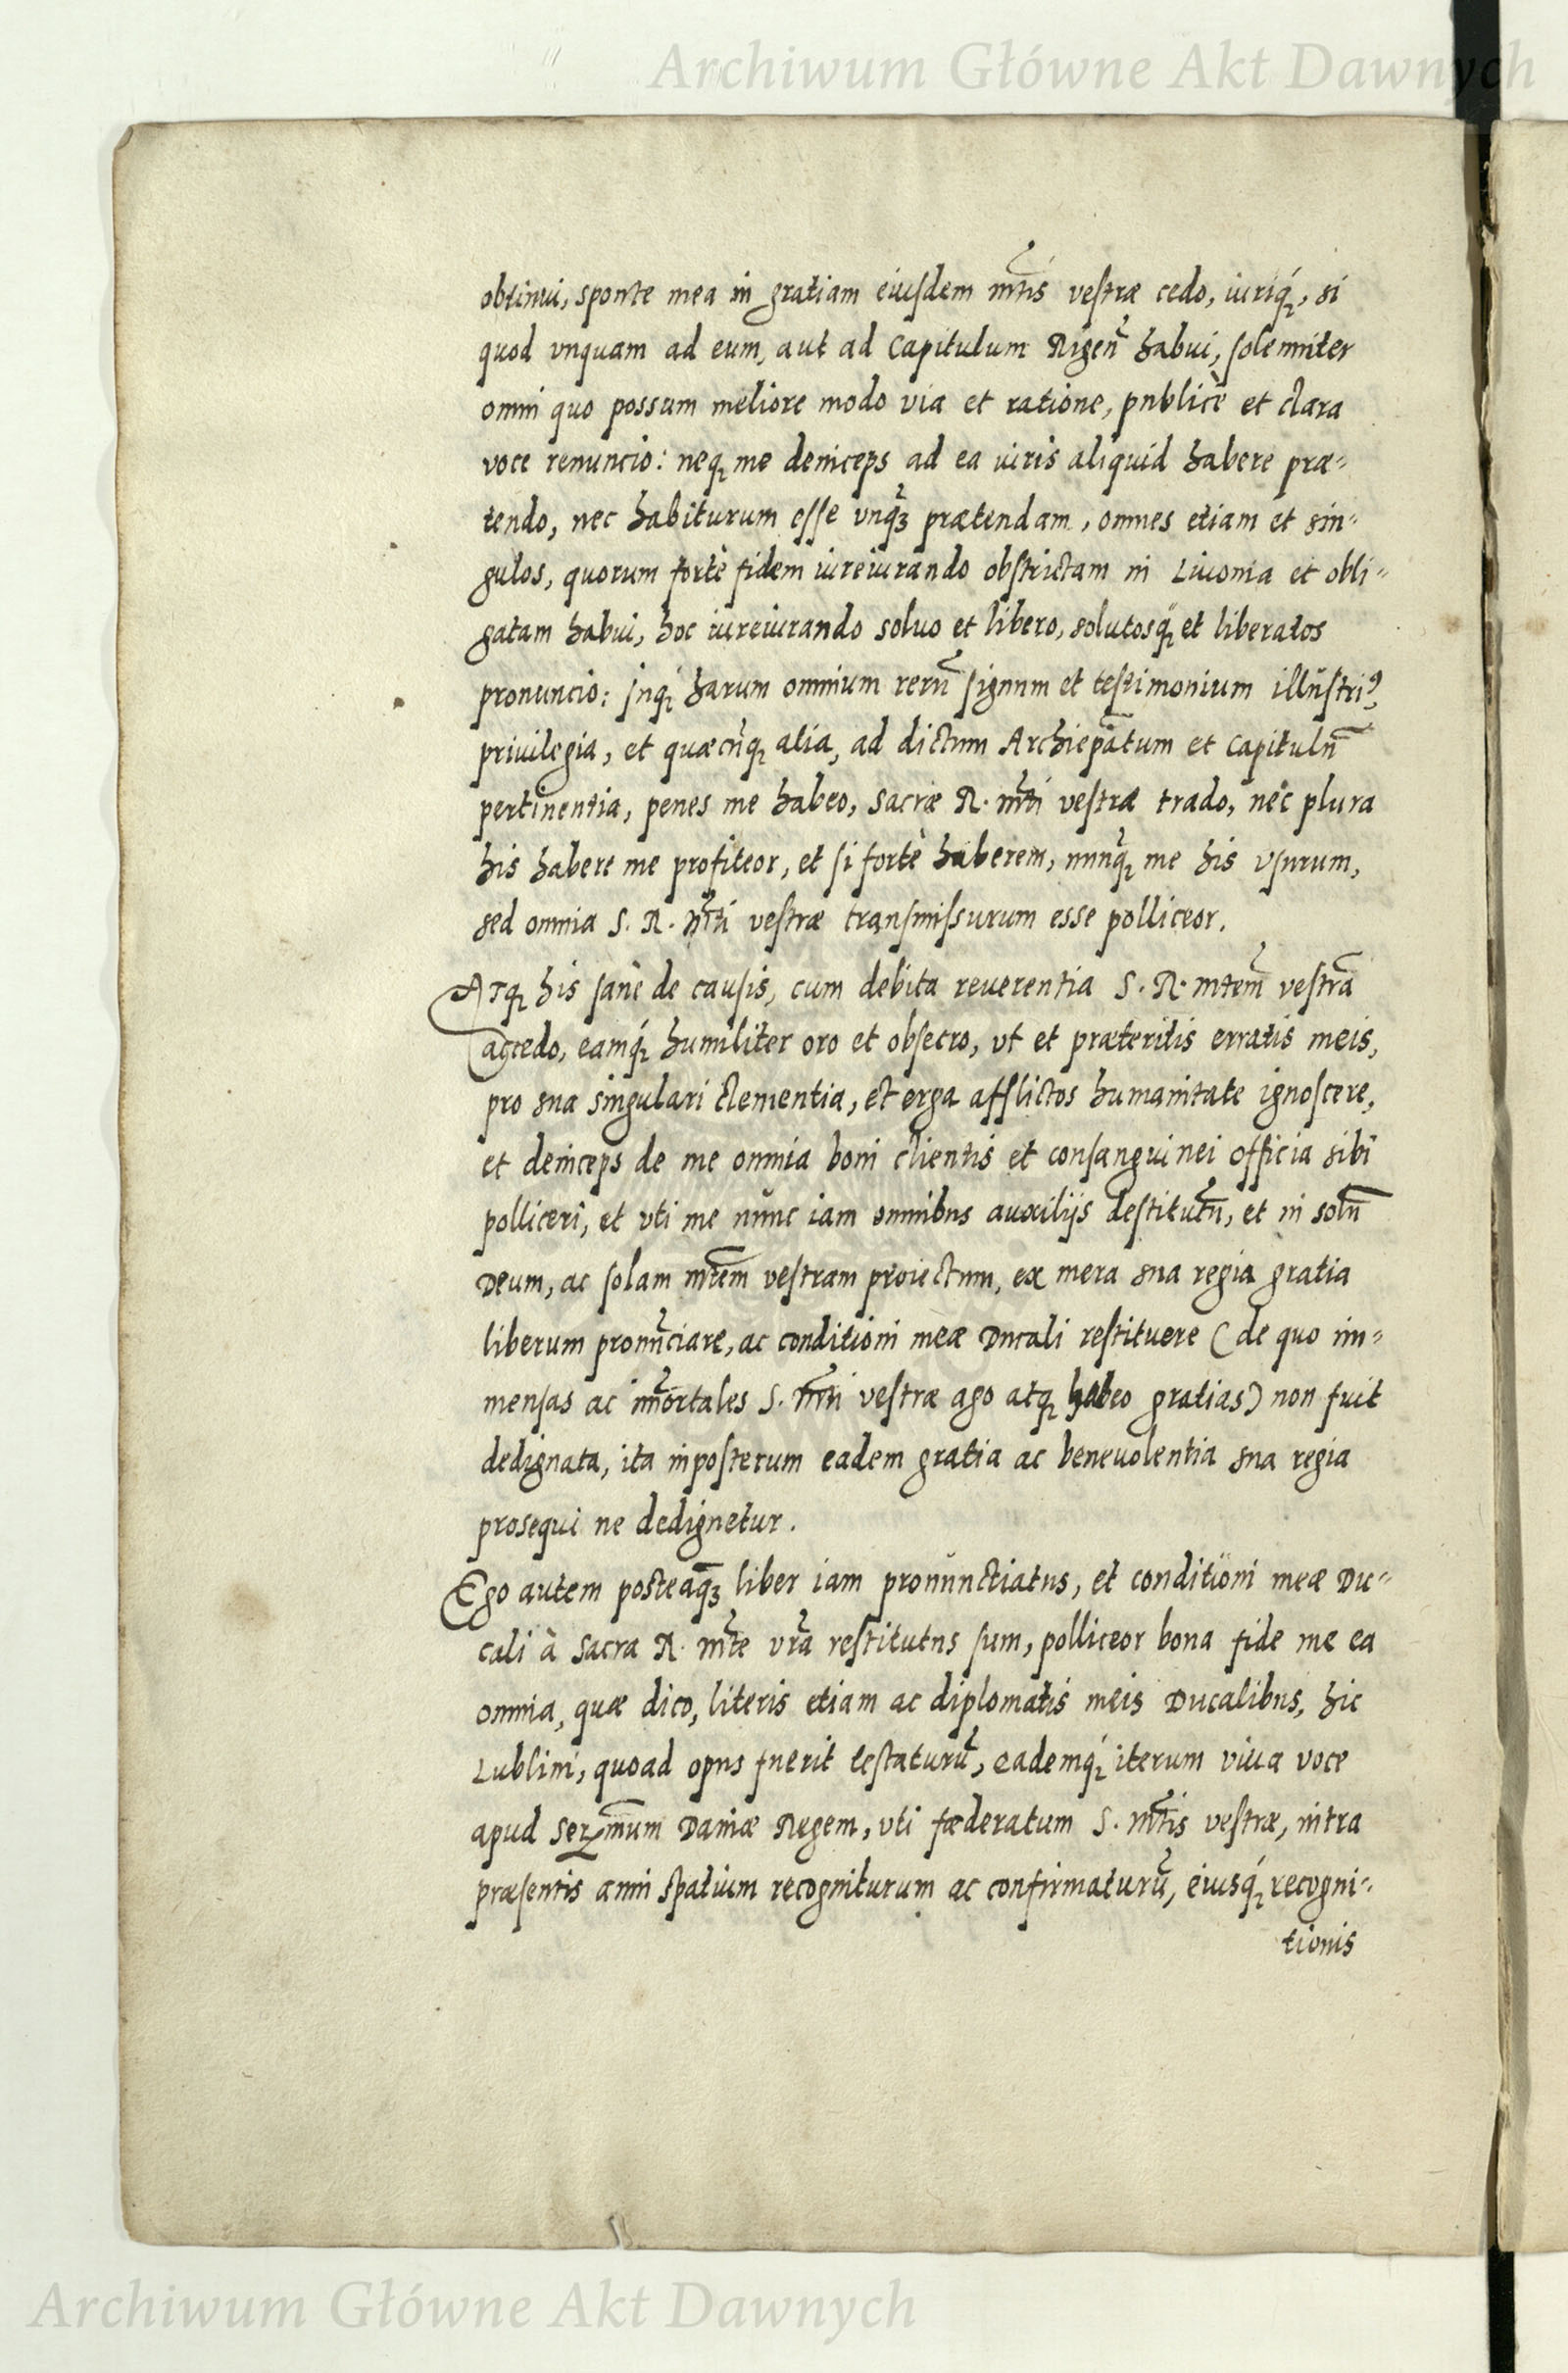 Archiwum Główne Akt Dawnych
obtinui, sponte mea in gratiam eiusdem mtis vestræ cedo, iuriq́, si
quod vnquam ad eum, aut ad Capitulum Rigeñ habui, solemniter
omni quo possum meliore modo via et ratione, publicè et clara
voce renuncio: neq me deinceps ad ea iuris aliquid habere præ=
tendo, nec habiturum esse vnq̃ȝ prætendam, omnes etiam et sin=
gulos, quorum fortè fidem iureiurando obstrictam in Liuonia et obli=
gatam habui, hoc iureiurando soluo et libero, solutosq́ et liberatos
pronuncio: Inq́ harum omnium rerũ signum et testimonium illustri9,
priuilegia, et quæcũq alia, ad dictum Archiep̃atum et Capitulũ
pertinentia, penes me habeo, Sacræ R. mt̃i vestræ trado, nec plura
his habere me profiteor, et si fortè haberem, nunq̃ me his vsurum,
sed omnia S. R. mt̃i vestræ transmissurum esse polliceor.
Atq his sanè de causis, cum debita reuerentia S. R. mtem̃ vestrã
accedo, eamq́ humiliter oro et obsecro, vt et præteritis erratis meis,
pro sua singulari clementia, et erga afflictos humanitate ignoscere,
et deinceps de me omnia boni clientis et consanguinei officia sibi
polliceri, et vti me nunc iam omnibus auxilijs destitutũ, et in solũ
Deum, ac solam mt̃em vestram proiectum, ex mera sua regia gratia
liberum pronũciare, ac conditioni meæ Ducali restituere (de quo im=
mensas ac im̃ortales S. mt̃i vestræ ago atq habeo gratias) non fuit
dedignata, ita inposterum eadem gratia ac beneuolentia sua regia
prosequi ne dedignetur.
Ego autem posteaq̃ȝ liber iam pronunctiatus, et conditioni meæ Du=
cali à Sacra R. mt̃e vrã restitutus sum, polliceor bona fide me ea
omnia, quæ dico, literis etiam ac diplomatis meis Ducalibus, hic
Lublini, quoad opus fuerit testaturũ, eademq́ iterum viua voce
apud Serm̃um Daniæ Regem, vti fæderatum S. mt̃is vestræ, intra
præsentis anni spatium recogniturum ac confirmaturũ, eiusq́ recogni=
tionis
Archiwum Główne Akt Dawnych